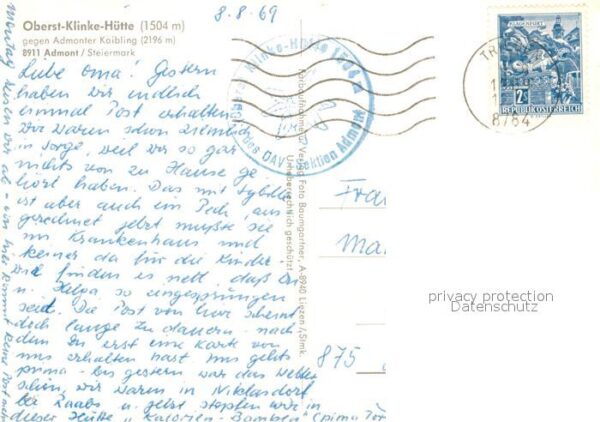 8.8.69
Oberst-Klinke-Hütte (1504 m)
gegen Admonter Kaibling (2196 m)
8911 Admont / Steiermark
Liebe Oma! Gestern
haben wir endlich
einmal Post erhalten
Wir waren schon ziemlich
in Sorge, weil wir so gar
nichts von zu Hause ge
hört haben. Das mit Sybille
ist aber auch ein Pech, aus
gerechnet jetzt mußte sie
im Krankenhaus und
keiner da für die Kinder.
Wir finden es nett, daß Du
u. Helga so eingesprungen
seid. Die Post von hier scheint
doch lange zu dauern. nach
dem Du erst eine Karte von
uns erhalten hast. Uns gehts
prima - bis gestern war das Wetter
schön, wir waren in Niklasdorf
bei Raabs u. jetzt stopfen wir in
dieser Hütte "Kalorien-Bomben" (prima
Montag reisen wir ab - von hier kommt keine Post mehr
Klinke-Hütte 1504
des DAV Sektion Admont
Farbaufnahme u. Verlag Foto Baumgartner, A-8940 Liezen / Stmk.
Urheberrechtlich geschützt
KLAGENFURT
2S
REPUBLIK ÖSTERREICH
8784
Frau
Ma
875
privacy protection
Datenschutz